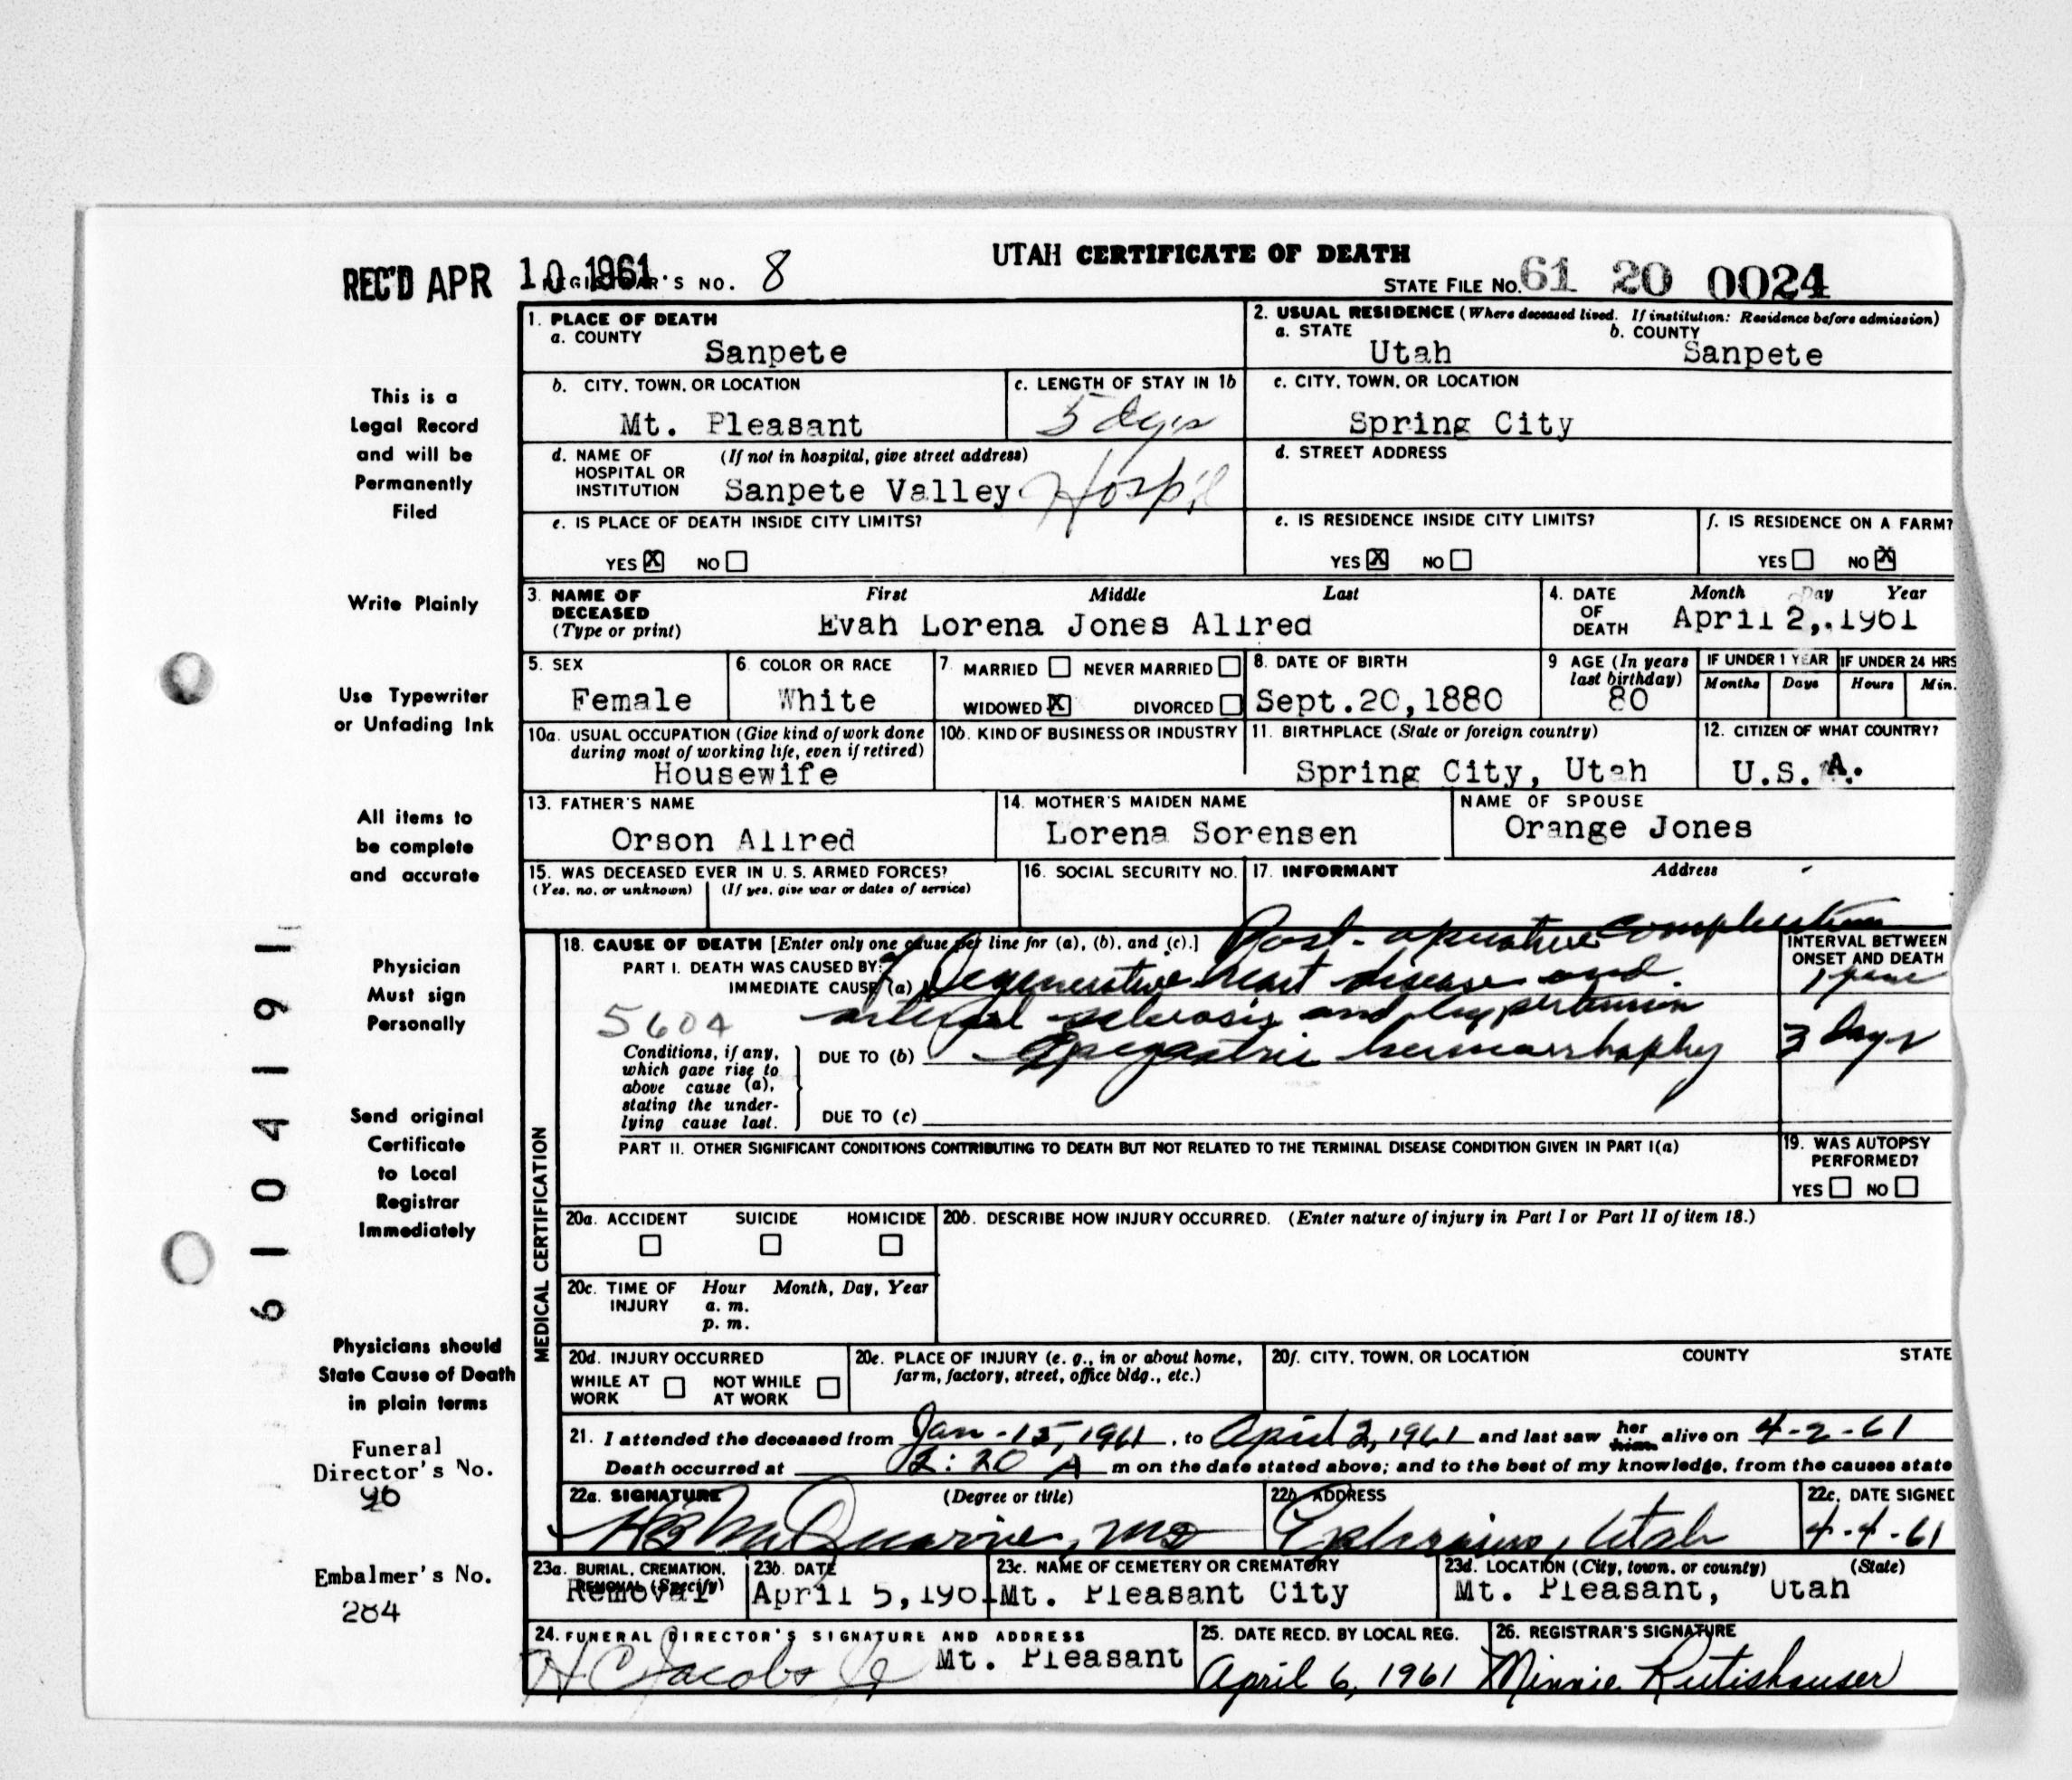 UTAH CERTIFICATE OF DEATH
REC'D APR 10 1961
REGISTRAR'S NO. 8
STATE FILE No. 61 20 0024
1. PLACE OF DEATH
a. COUNTY
Sanpete
2. USUAL RESIDENCE (Where deceased lived. If institution: Residence before admission)
a. STATE b. COUNTY
Utah Sanpete
b. CITY, TOWN, OR LOCATION
Mt. Pleasant
c. LENGTH OF STAY IN 1b
5 days
c. CITY, TOWN, OR LOCATION
Spring City
d. NAME OF HOSPITAL OR INSTITUTION (If not in hospital, give street address)
Sanpete Valley Hosp'l
d. STREET ADDRESS
e. IS PLACE OF DEATH INSIDE CITY LIMITS?
YES X NO
e. IS RESIDENCE INSIDE CITY LIMITS?
YES X NO
f. IS RESIDENCE ON A FARM?
YES NO X
3. NAME OF DECEASED (Type or print) First Middle Last
Evah Lorena Jones Allred
4. DATE OF DEATH Month Day Year
April 2, 1961
5. SEX
Female
6. COLOR OR RACE
White
7. MARRIED NEVER MARRIED
WIDOWED X DIVORCED
8. DATE OF BIRTH
Sept.20,1880
9 AGE (In years last birthday)
80
IF UNDER 1 YEAR IF UNDER 24 HRS
Months Days Hours Min.
10a. USUAL OCCUPATION (Give kind of work done during most of working life, even if retired)
Housewife
10b. KIND OF BUSINESS OR INDUSTRY
11. BIRTHPLACE (State or foreign country)
Spring City, Utah
12. CITIZEN OF WHAT COUNTRY?
U.S.A.
13. FATHER'S NAME
Orson Allred
14. MOTHER'S MAIDEN NAME
Lorena Sorensen
NAME OF SPOUSE
Orange Jones
15. WAS DECEASED EVER IN U. S. ARMED FORCES?
(Yes, no, or unknown) (If yes, give war or dates of service)
16. SOCIAL SECURITY NO.
17. INFORMANT Address
MEDICAL CERTIFICATION
18. CAUSE OF DEATH [Enter only one cause per line for (a), (b), and (c).] Post-operative complication
PART I. DEATH WAS CAUSED BY:
IMMEDIATE CAUSE (a) of Degenerative heart disease and
arterial sclerosis and hypertension
5604
Conditions, if any, which gave rise to above cause (a), stating the underlying cause last.
DUE TO (b) Epigastric herniorrhaphy
DUE TO (c)
INTERVAL BETWEEN ONSET AND DEATH
1 year
3 days
PART II. OTHER SIGNIFICANT CONDITIONS CONTRIBUTING TO DEATH BUT NOT RELATED TO THE TERMINAL DISEASE CONDITION GIVEN IN PART I(a)
19. WAS AUTOPSY PERFORMED?
YES NO
20a. ACCIDENT SUICIDE HOMICIDE
20b. DESCRIBE HOW INJURY OCCURRED. (Enter nature of injury in Part I or Part II of item 18.)
20c. TIME OF INJURY Hour Month, Day, Year
a. m.
p. m.
20d. INJURY OCCURRED
WHILE AT WORK NOT WHILE AT WORK
20e. PLACE OF INJURY (e. g., in or about home, farm, factory, street, office bldg., etc.)
20f. CITY, TOWN, OR LOCATION COUNTY STATE
21. I attended the deceased from Jan-15, 1961, to April 2, 1961 and last saw her him alive on 4-2-61
Death occurred at 2:20 A m on the date stated above; and to the best of my knowledge, from the causes state
22a. SIGNATURE (Degree or title)
HB McQuarrie, MD
22b. ADDRESS
Ephraim, Utah
22c. DATE SIGNED
4-4-61
23a. BURIAL, CREMATION, REMOVAL (Specify)
Removal
23b. DATE
April 5, 1961
23c. NAME OF CEMETERY OR CREMATORY
Mt. Pleasant City
23d. LOCATION (City, town, or county) (State)
Mt. Pleasant, Utah
24. FUNERAL DIRECTOR'S SIGNATURE AND ADDRESS
H C Jacobs Mt. Pleasant
25. DATE RECD. BY LOCAL REG.
April 6, 1961
26. REGISTRAR'S SIGNATURE
Minnie Rutishauser
This is a
Legal Record
and will be
Permanently
Filed
Write Plainly
Use Typewriter
or Unfading Ink
All items to
be complete
and accurate
Physician
Must sign
Personally
Send original
Certificate
to Local
Registrar
Immediately
Physicians should
State Cause of Death
in plain terms
Funeral
Director's No.
96
Embalmer's No.
284
6104191